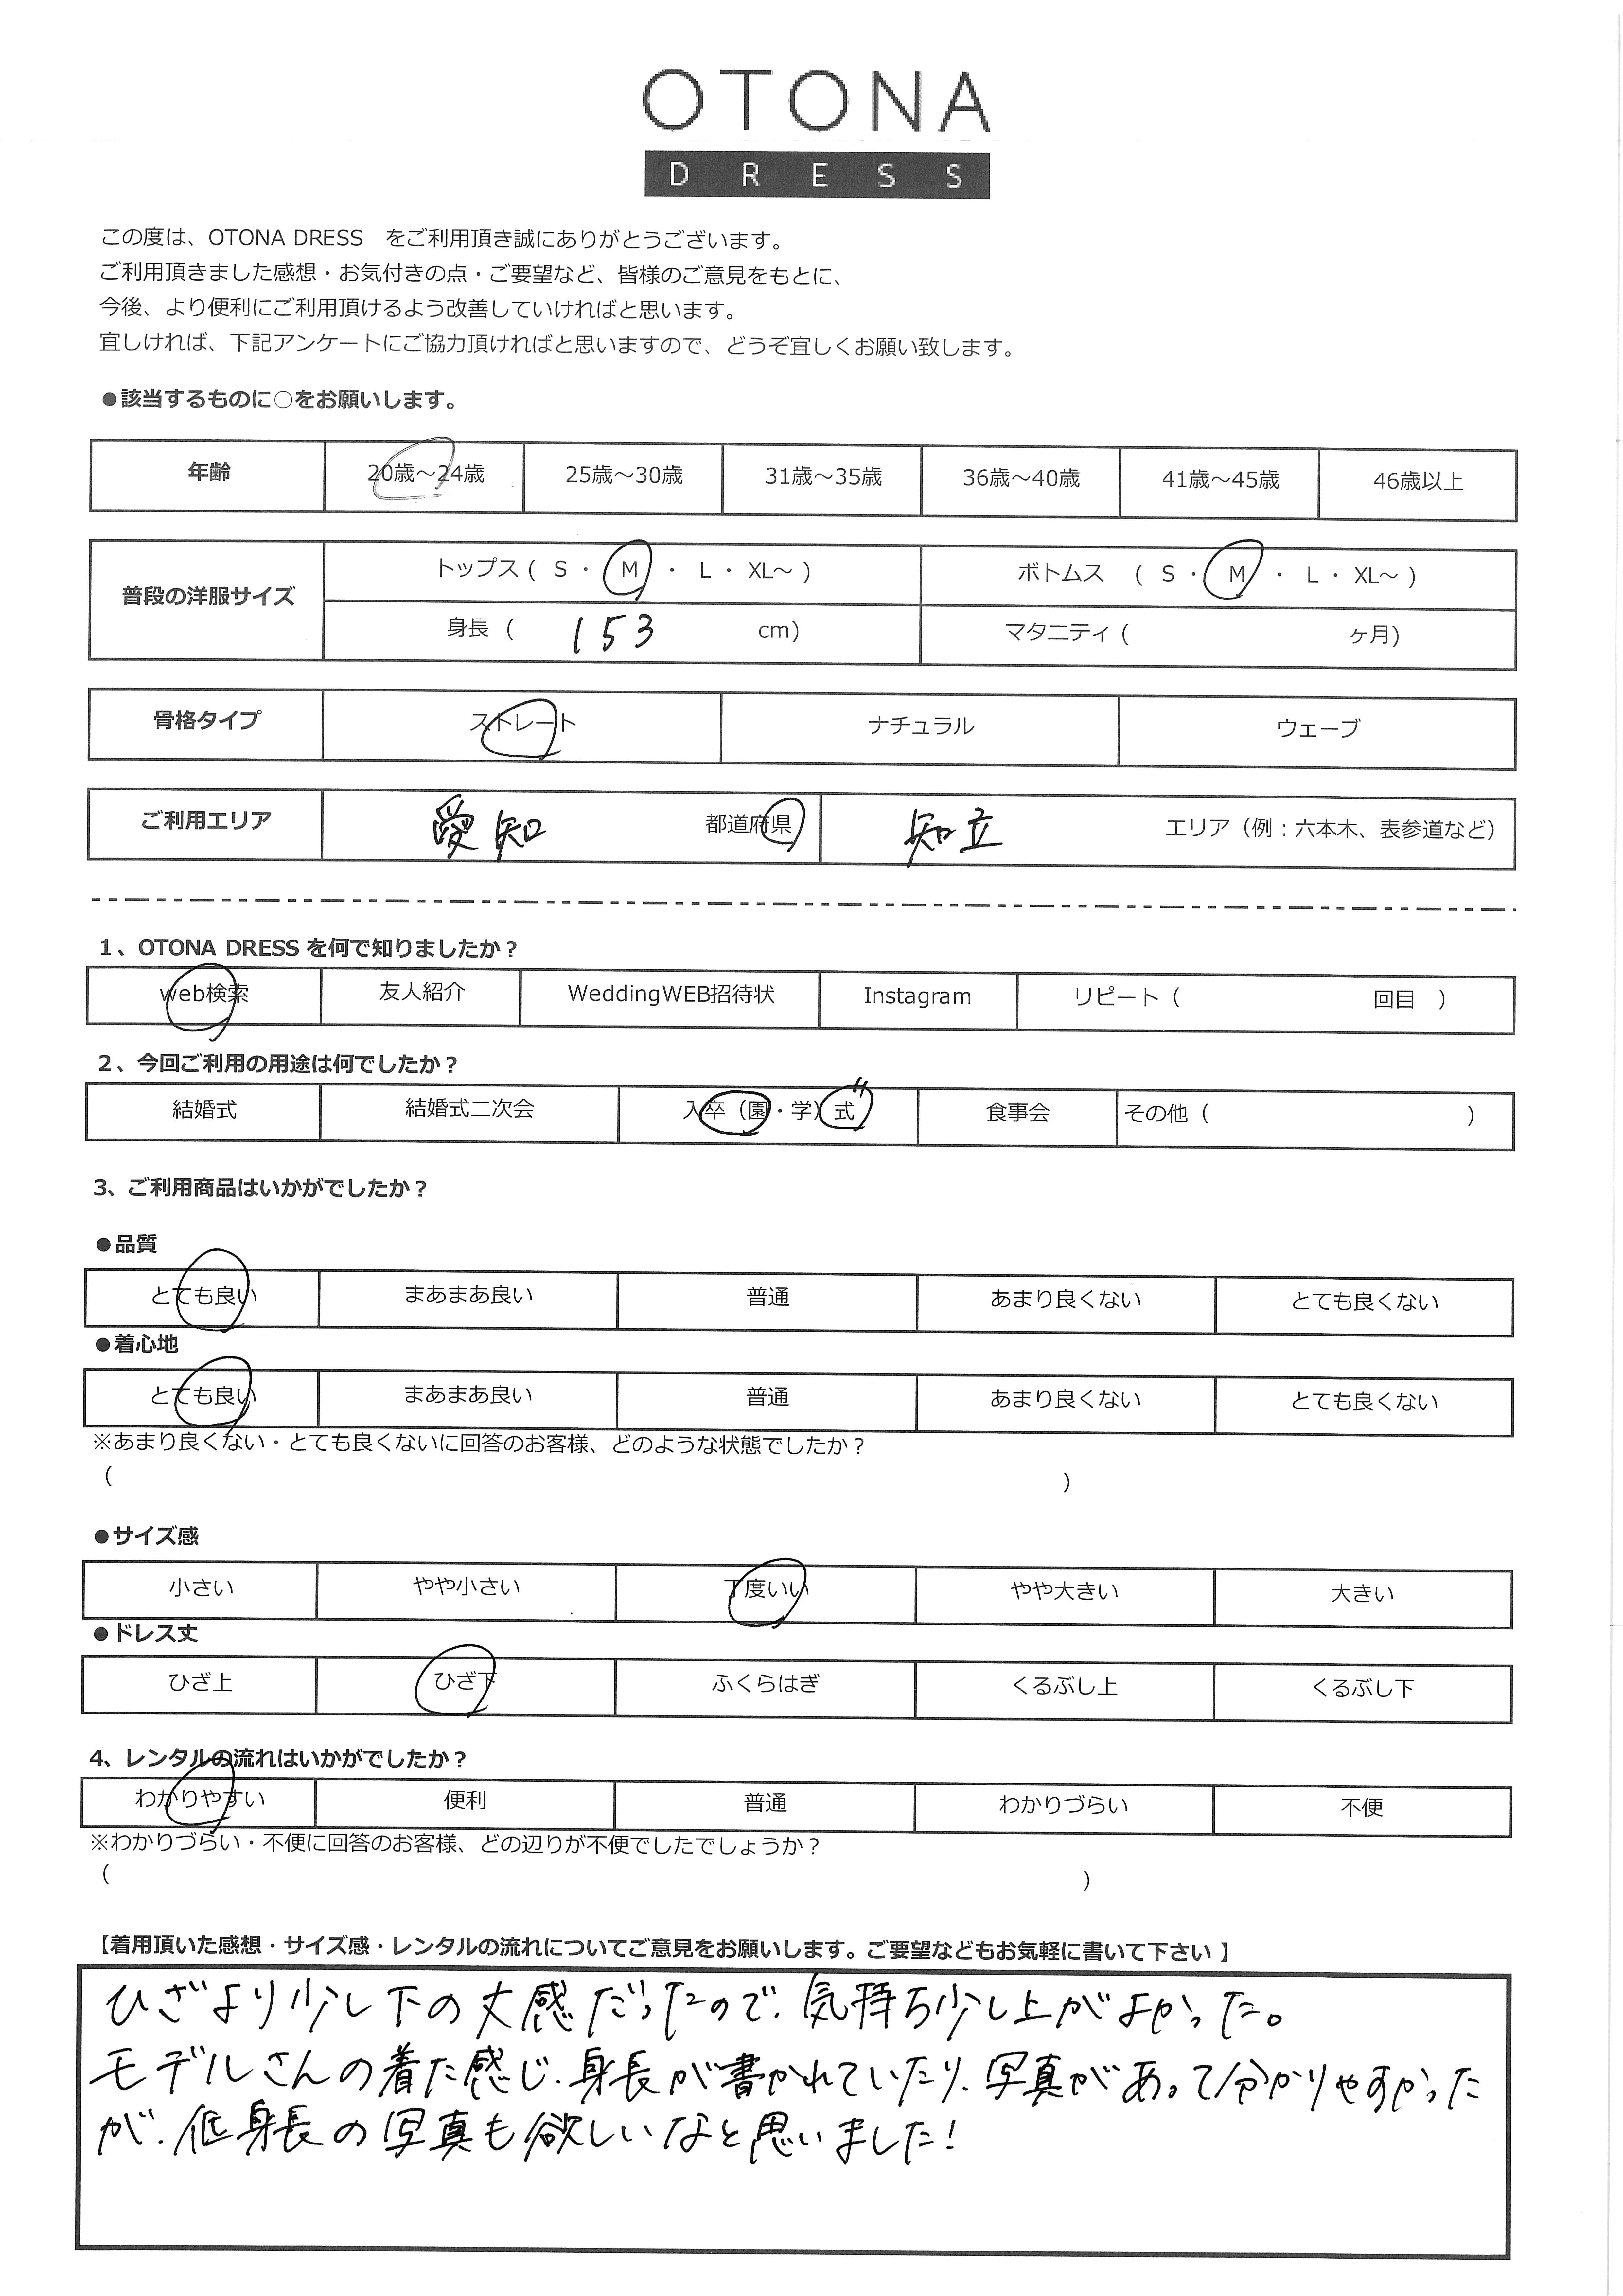 OTONA
DRESS
この度は、OTONA DRESS　をご利用頂き誠にありがとうございます。
ご利用頂きました感想・お気付きの点・ご要望など、皆様のご意見をもとに、
今後、より便利にご利用頂けるよう改善していければと思います。
宜しければ、下記アンケートにご協力頂ければと思いますので、どうぞ宜しくお願い致します。
●該当するものに○をお願いします。
年齢 20歳～24歳 25歳～30歳 31歳～35歳 36歳～40歳 41歳～45歳 46歳以上
普段の洋服サイズ トップス ( S ・ M ・ L ・ XL～ ) ボトムス ( S ・ M ・ L ・ XL～ )
身長 ( 153 cm) マタニティ ( ヶ月)
骨格タイプ ストレート ナチュラル ウェーブ
ご利用エリア 愛知 都道府県 知立 エリア（例：六本木、表参道など）
1、OTONA DRESS を何で知りましたか？
web検索 友人紹介 WeddingWEB招待状 Instagram リピート（ 回目 ）
2、今回ご利用の用途は何でしたか？
結婚式 結婚式二次会 入卒（園・学）式 食事会 その他（ ）
3、ご利用商品はいかがでしたか？
●品質
とても良い まあまあ良い 普通 あまり良くない とても良くない
●着心地
とても良い まあまあ良い 普通 あまり良くない とても良くない
※あまり良くない・とても良くないに回答のお客様、どのような状態でしたか？
（ ）
●サイズ感
小さい やや小さい 丁度いい やや大きい 大きい
●ドレス丈
ひざ上 ひざ下 ふくらはぎ くるぶし上 くるぶし下
4、レンタルの流れはいかがでしたか？
わかりやすい 便利 普通 わかりづらい 不便
※わかりづらい・不便に回答のお客様、どの辺りが不便でしたでしょうか？
（ ）
【着用頂いた感想・サイズ感・レンタルの流れについてご意見をお願いします。ご要望などもお気軽に書いて下さい 】
ひざより少し下の丈感だったので、気持ち少し上がよかった。
モデルさんの着た感じ、身長が書かれていたり、写真があって分かりやすかった
が、低身長の写真も欲しいなと思いました！